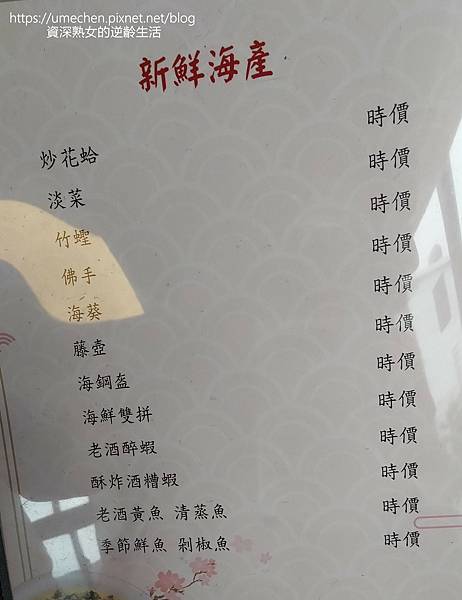 https://umechen.pixnet.net/blog
資深熟女的逆齡生活
新鮮海產
炒花蛤 時價
淡菜 時價
竹蟶 時價
佛手 時價
海葵 時價
藤壺 時價
海鋼盔 時價
海鮮雙拼 時價
老酒醉蝦 時價
酥炸酒糟蝦 時價
老酒黃魚 清蒸魚 時價
季節鮮魚 剁椒魚 時價